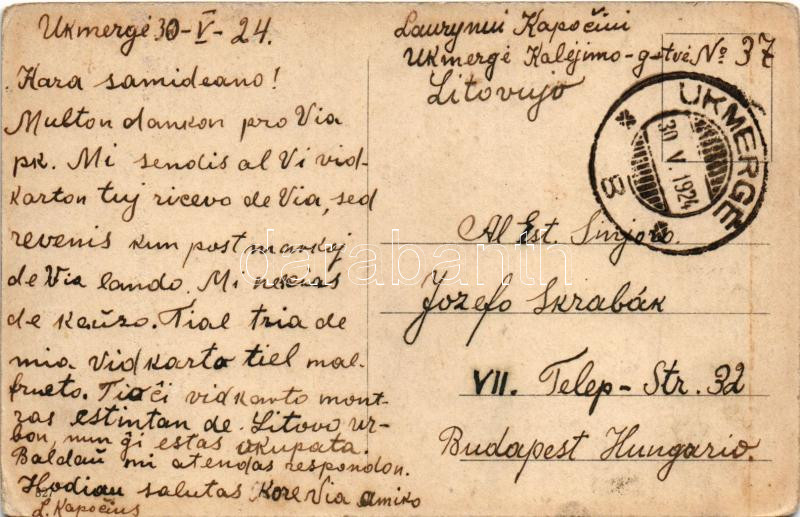 Ukmergė 30-V-24.
Kara samideano!
Multon dankon pro Via
pk. Mi sendis al Vi vid-
karton tuj ricevo de Via, sed
revenis kun postmarkoj
de Via lando. Mi necias
de kaŭzo. Tial tria de
mia vidkarto tiel mal-
frueto. Tia ĉi vidkarto mont-
ras estintan de Litovo ur-
bon, nun ĝi estas okupata.
Baldaŭ mi atendas respondon.
Hodiau salutas Kore Via amiko
L. Kapočius
Laurynui Kapočiui
Ukmergė Kalėjimo-g-tvė № 37
Litovujo
UKMERGĖ
30 V. 1924
B
Al Est. Sinjoro.
Jozefo Skrabák
VII. Telep-Str. 32
Budapest Hungario.
darabanth